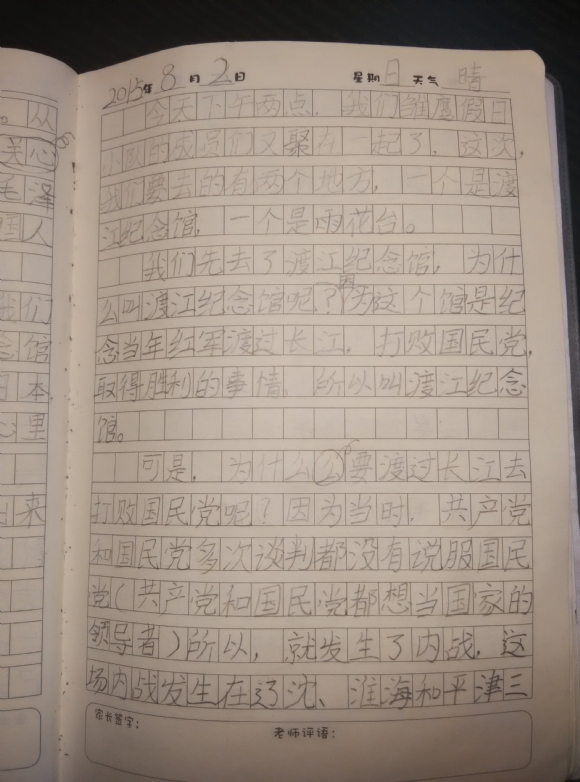 2015年8月2日 星期日 天气 晴
今天下午两点，我们雏鹰假日
小队的成员们又聚在一起了，这次，
我们要去的有两个地方，一个是渡
江纪念馆，一个是雨花台。
我们先去了渡江纪念馆，为什
么叫渡江纪念馆呢？因为这个馆是纪
念当年红军渡过长江，打败国民党，
取得胜利的事情，所以叫渡江纪念
馆。
可是，为什么么要渡过长江去
打败国民党呢？因为当时，共产党
和国民党多次谈判都没有说服国民
党（共产党和国民党都想当国家的
领导者）所以，就发生了内战，这
场内战发生在辽沈、淮海和平津三
家长签字：
老师评语：
。从
关心
毛泽
国人
我们
念馆
日本
心里
来